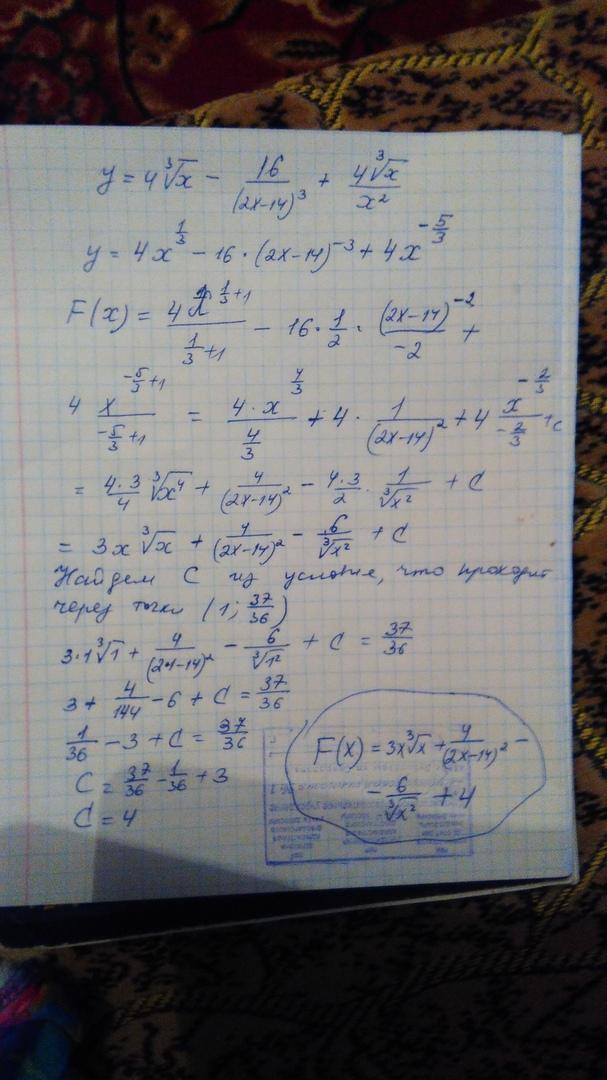 y = 4∛x − 16/(2x−14)³ + 4∛x/x²
y = 4x^(1/3) − 16·(2x−14)^(−3) + 4x^(−5/3)
F(x) = 4x^(1/3+1)/(1/3+1) − 16·1/2·(2x−14)^(−2)/(−2) +
4 x^(−5/3+1)/(−5/3+1) = 4·x^(4/3)/(4/3) + 4·1/(2x−14)² + 4 x^(−2/3)/(−2/3) + C
= 4·3/4 ∛x⁴ + 4/(2x−14)² − 4·3/2 · 1/∛x² + C
= 3x∛x + 4/(2x−14)² − 6/∛x² + C
Найдем C из условие, что проходит
через точки (1; 37/36)
3·1∛1 + 4/(2·1−14)² − 6/∛1² + C = 37/36
3 + 4/144 − 6 + C = 37/36
1/36 − 3 + C = 37/36
C = 37/36 − 1/36 + 3
C = 4
F(x) = 3x∛x + 4/(2x−14)² −
− 6/∛x² + 4